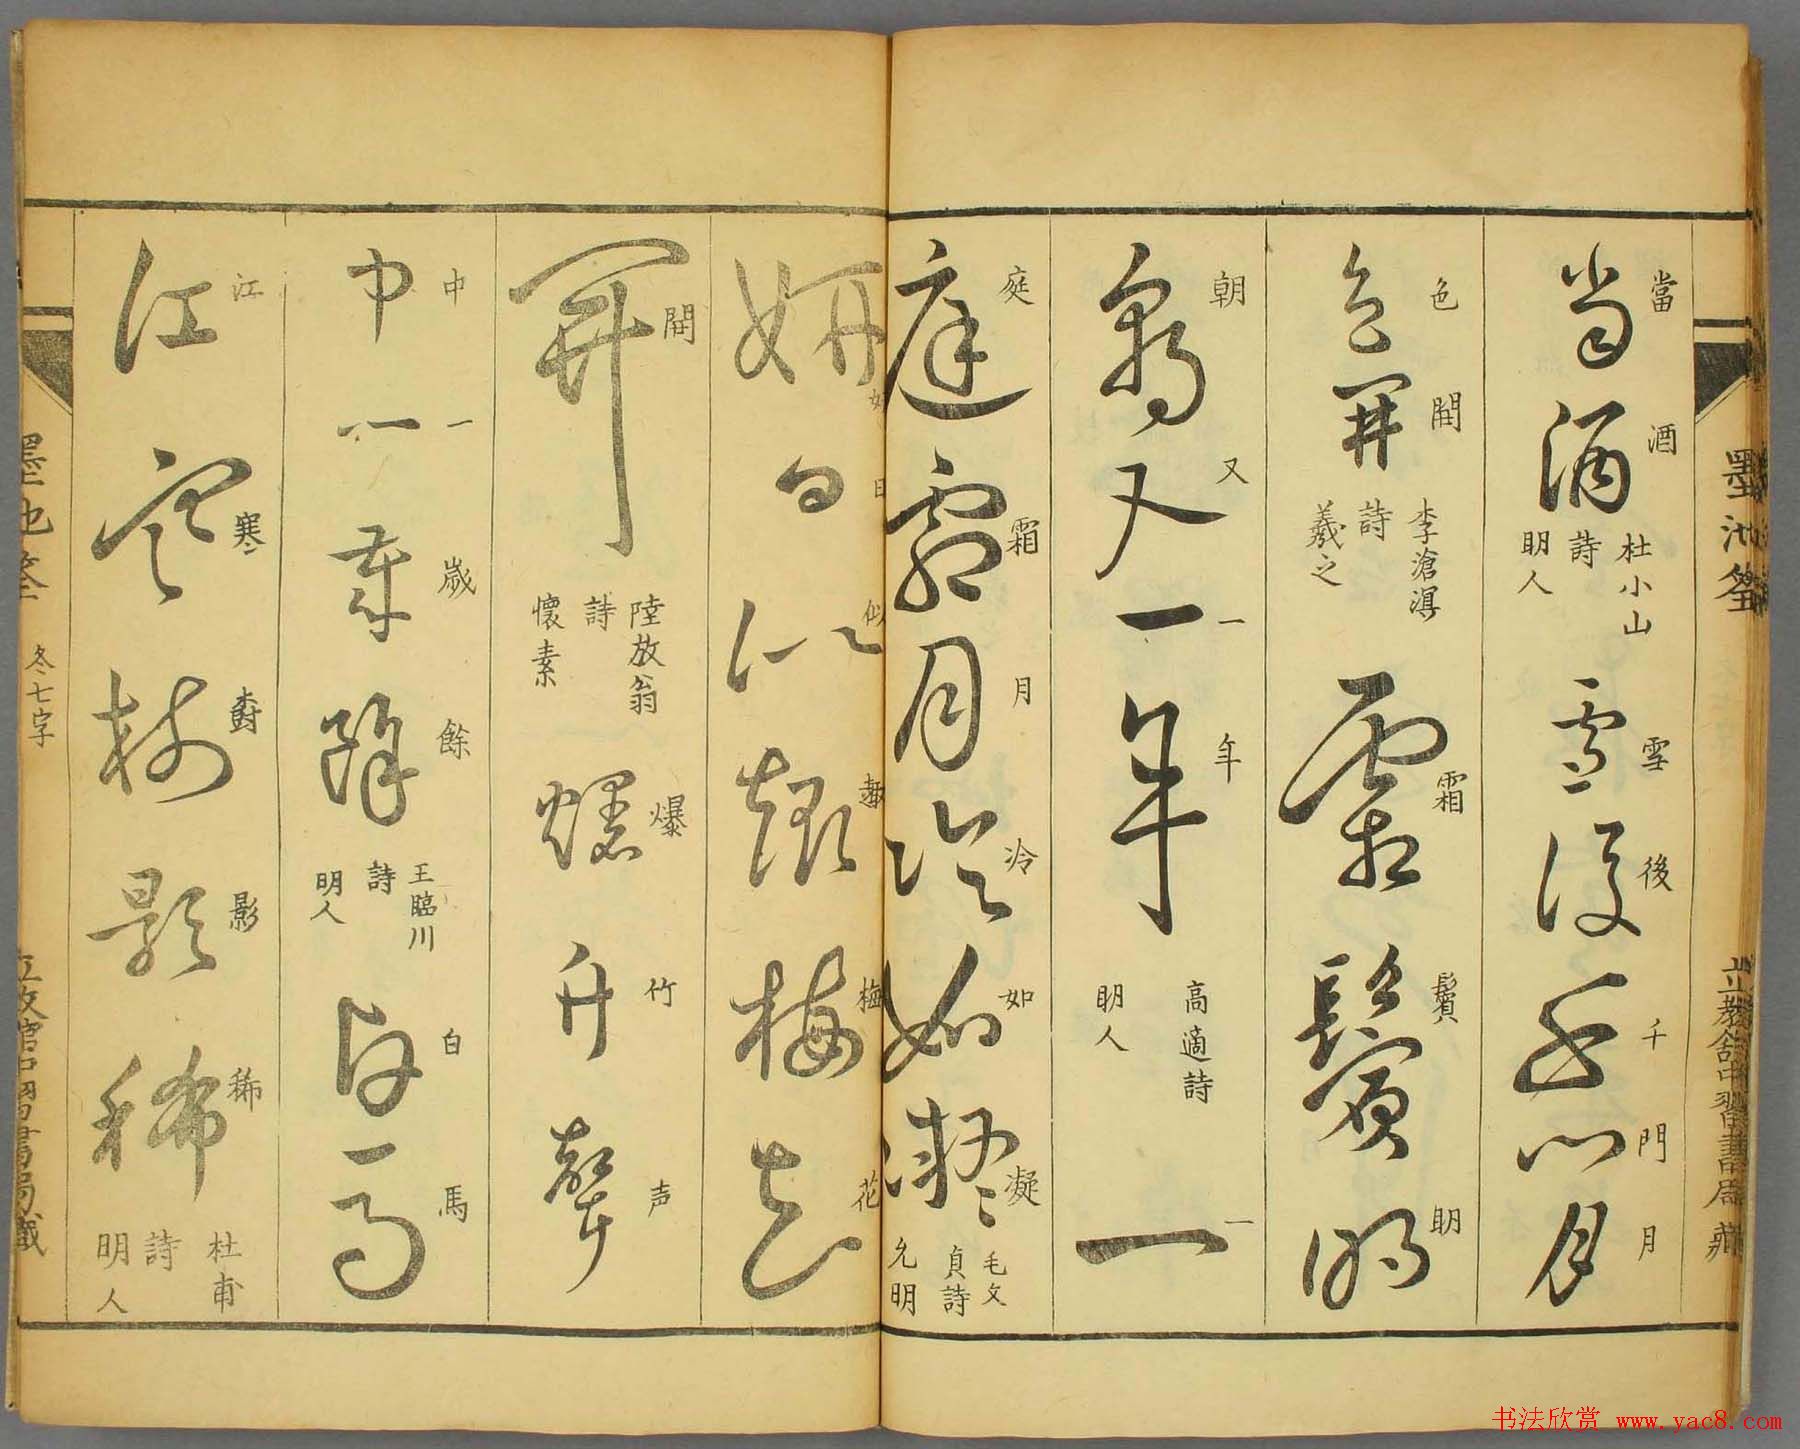 墨池筌
立教舘中習書局藏
當酒
杜小山
詩
明人
雪後千門月
色開
李滄溟
詩
羲之
霜鬢明
朝又一年
高適詩
明人
一
庭霜月冷如凝
毛文
貞詩
允明
妍日似趣梅花
開
陸放翁
詩
懷素
爆竹声
中一歲餘
王臨川
詩
明人
白馬
江寒樹影稀
杜甫
詩
明人
冬七字
书法欣赏 www.yac8.com